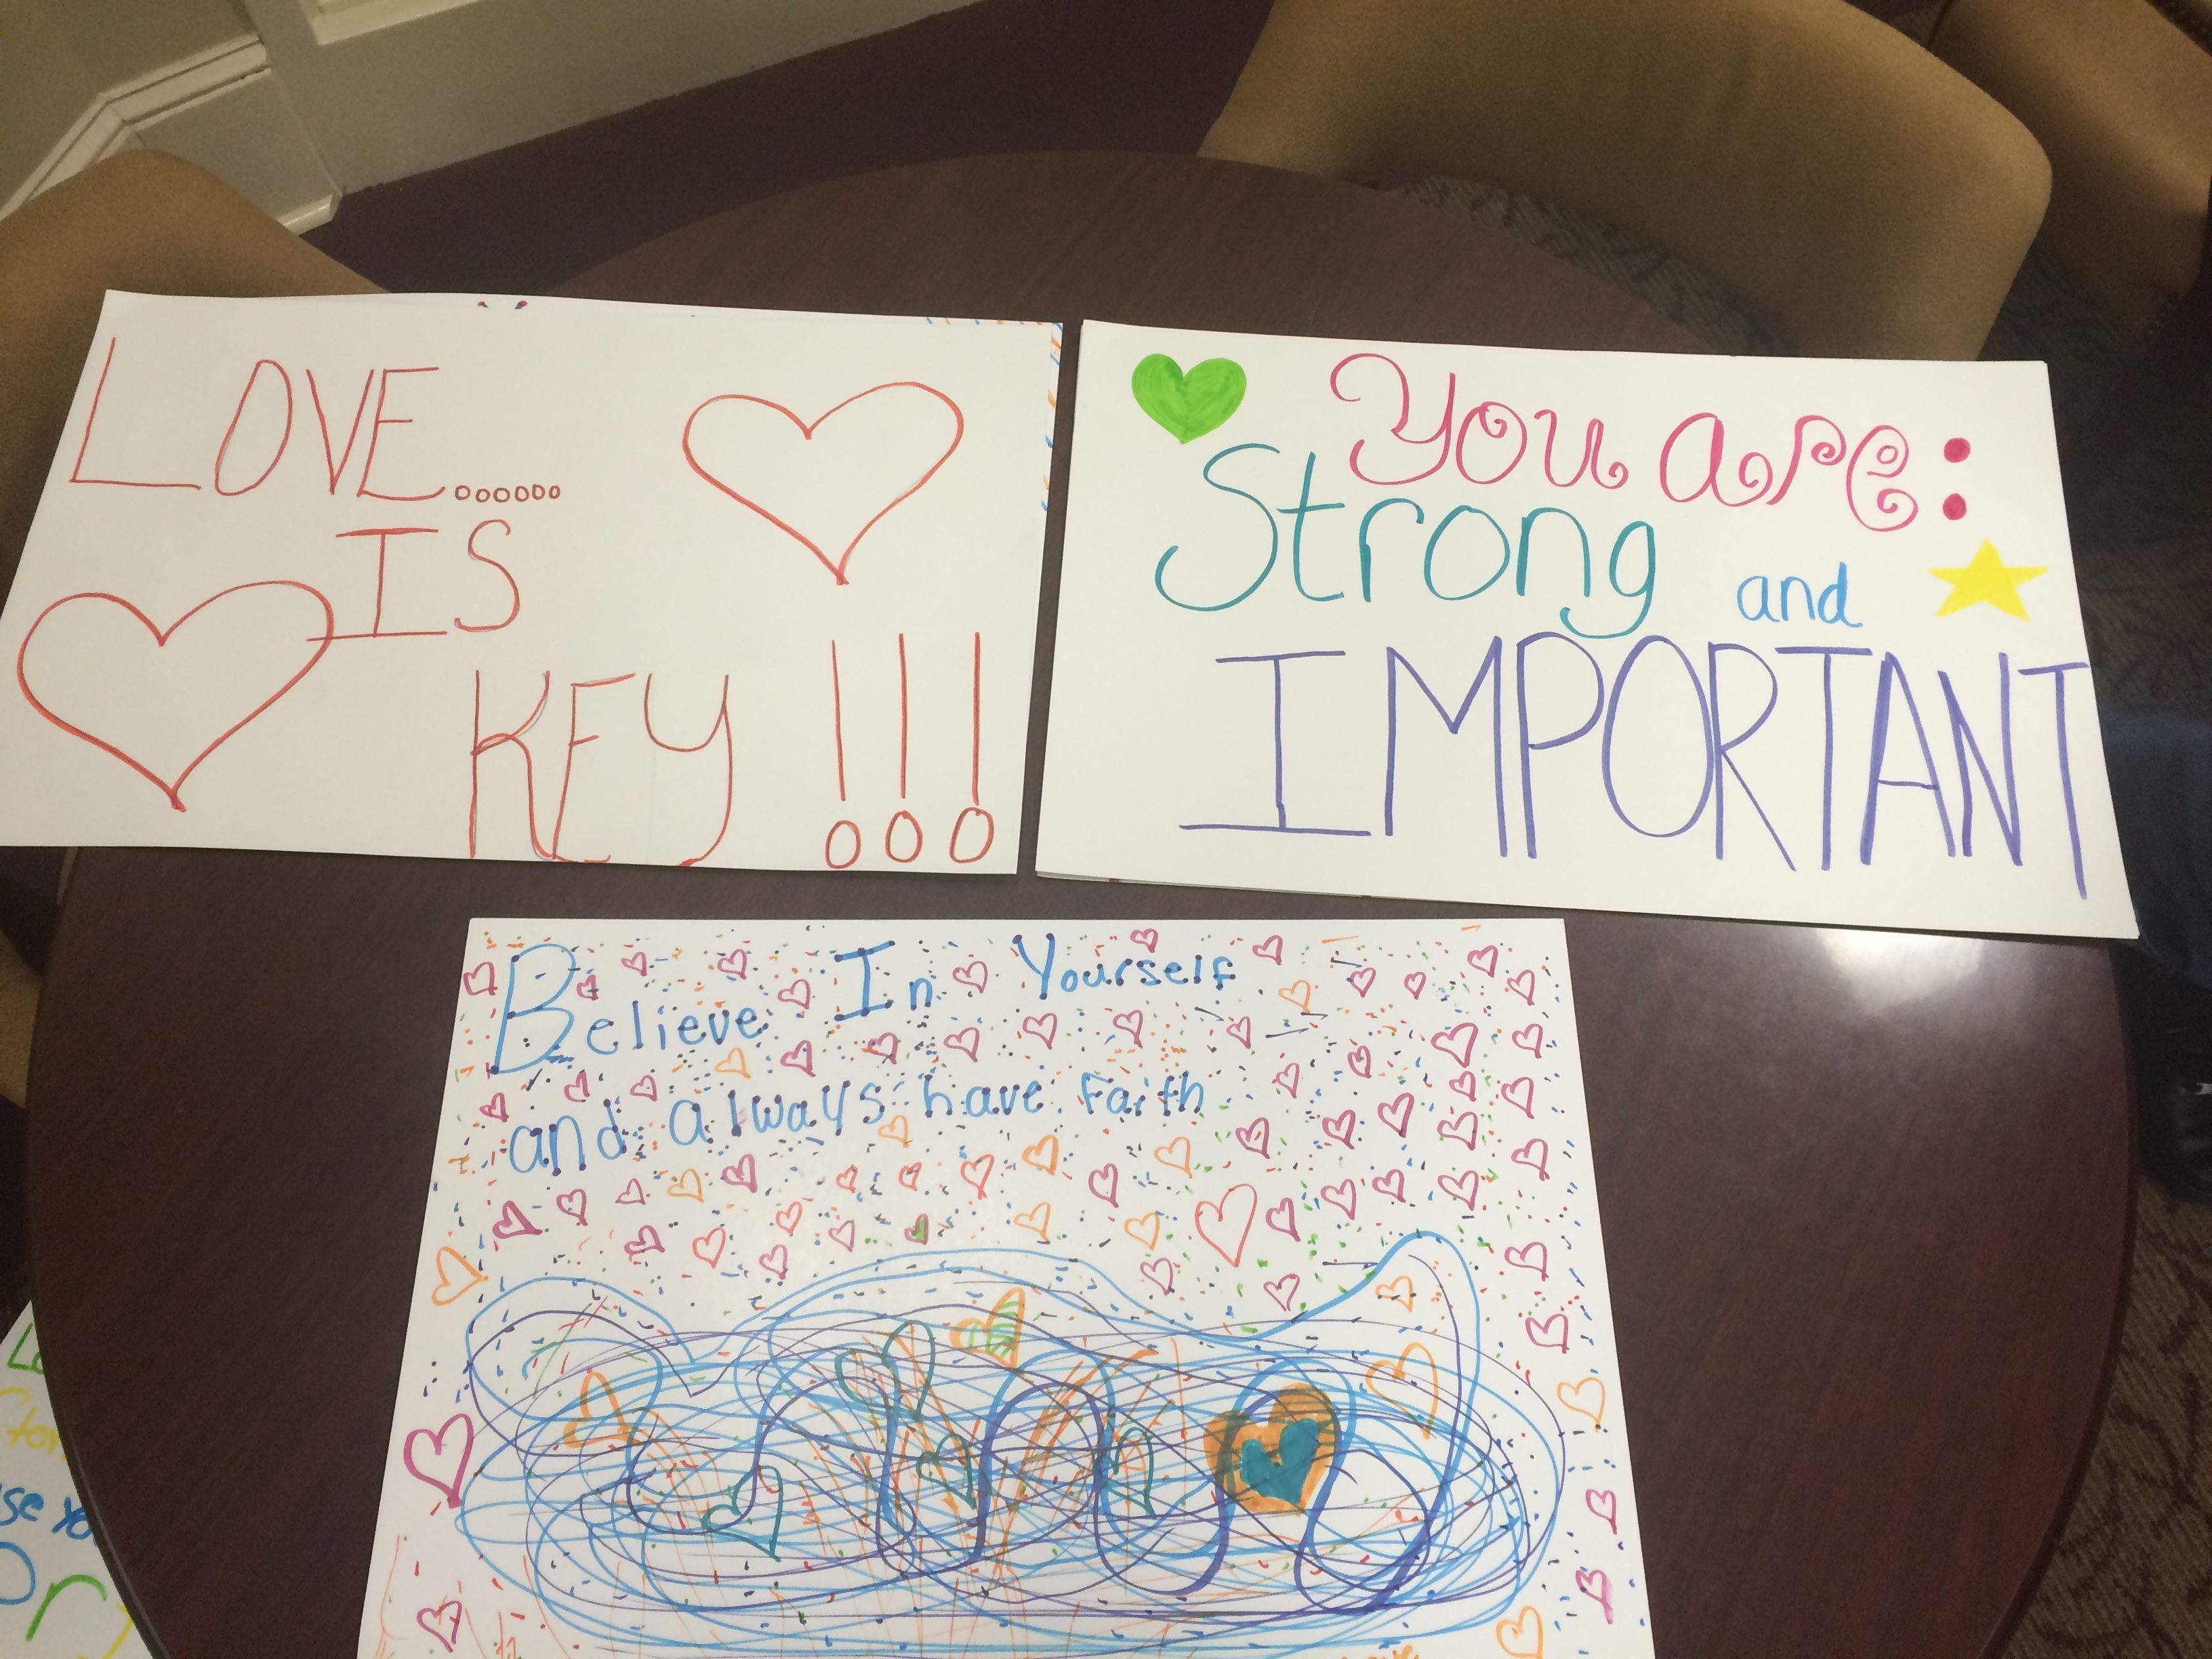 LOVE......
IS
KEY!!!
You are:
Strong and
IMPORTANT
Believe In Yourself
and always have faith